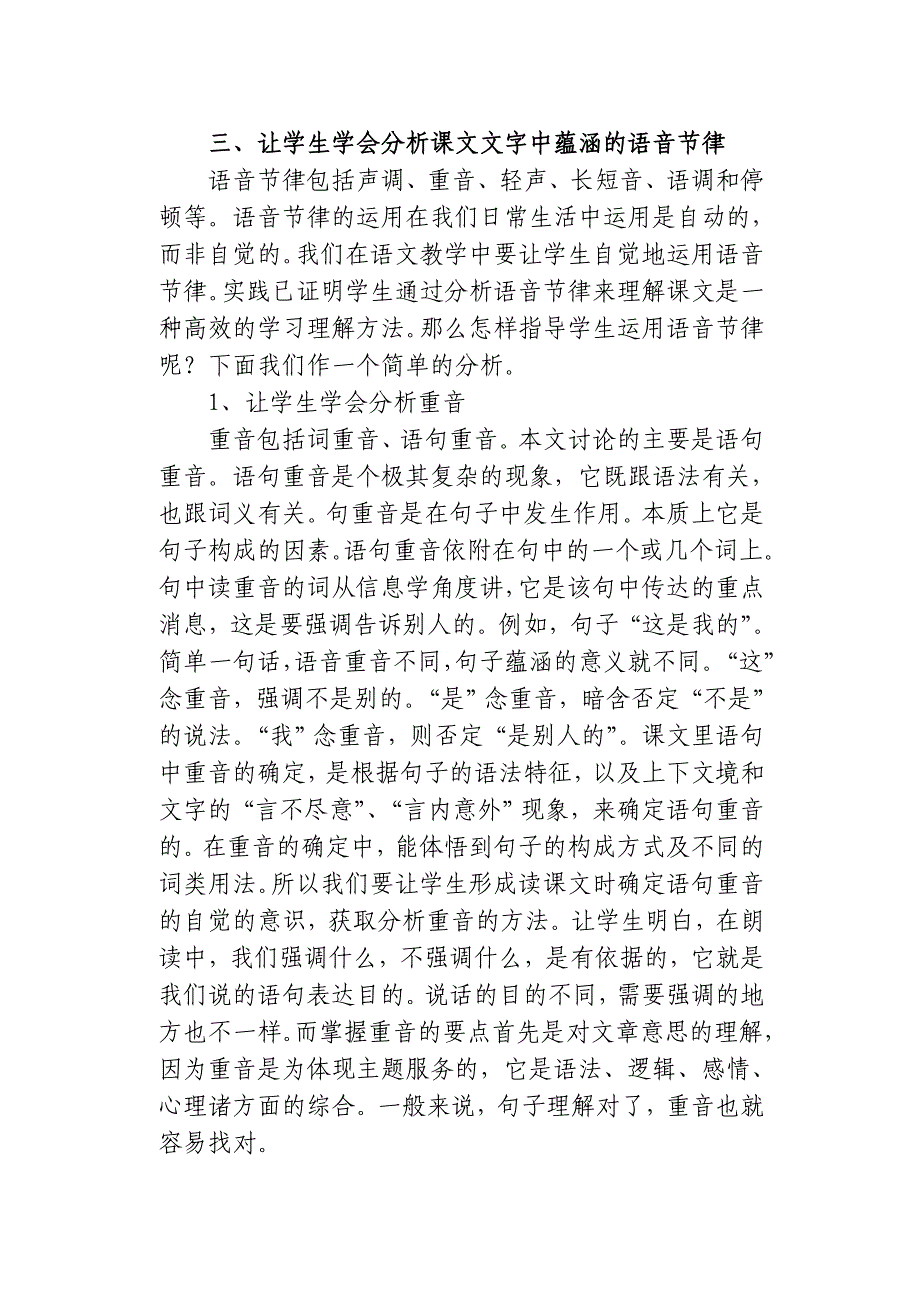 三、让学生学会分析课文文字中蕴涵的语音节律
语音节律包括声调、重音、轻声、长短音、语调和停
顿等。语音节律的运用在我们日常生活中运用是自动的，
而非自觉的。我们在语文教学中要让学生自觉地运用语音
节律。实践已证明学生通过分析语音节律来理解课文是一
种高效的学习理解方法。那么怎样指导学生运用语音节律
呢？下面我们作一个简单的分析。
1、让学生学会分析重音
重音包括词重音、语句重音。本文讨论的主要是语句
重音。语句重音是个极其复杂的现象，它既跟语法有关，
也跟词义有关。句重音是在句子中发生作用。本质上它是
句子构成的因素。语句重音依附在句中的一个或几个词上。
句中读重音的词从信息学角度讲，它是该句中传达的重点
消息，这是要强调告诉别人的。例如，句子“这是我的”。
简单一句话，语音重音不同，句子蕴涵的意义就不同。“这”
念重音，强调不是别的。“是”念重音，暗含否定“不是”
的说法。“我”念重音，则否定“是别人的”。课文里语句
中重音的确定，是根据句子的语法特征，以及上下文境和
文字的“言不尽意”、“言内意外”现象，来确定语句重音
的。在重音的确定中，能体悟到句子的构成方式及不同的
词类用法。所以我们要让学生形成读课文时确定语句重音
的自觉的意识，获取分析重音的方法。让学生明白，在朗
读中，我们强调什么，不强调什么，是有依据的，它就是
我们说的语句表达目的。说话的目的不同，需要强调的地
方也不一样。而掌握重音的要点首先是对文章意思的理解，
因为重音是为体现主题服务的，它是语法、逻辑、感情、
心理诸方面的综合。一般来说，句子理解对了，重音也就
容易找对。